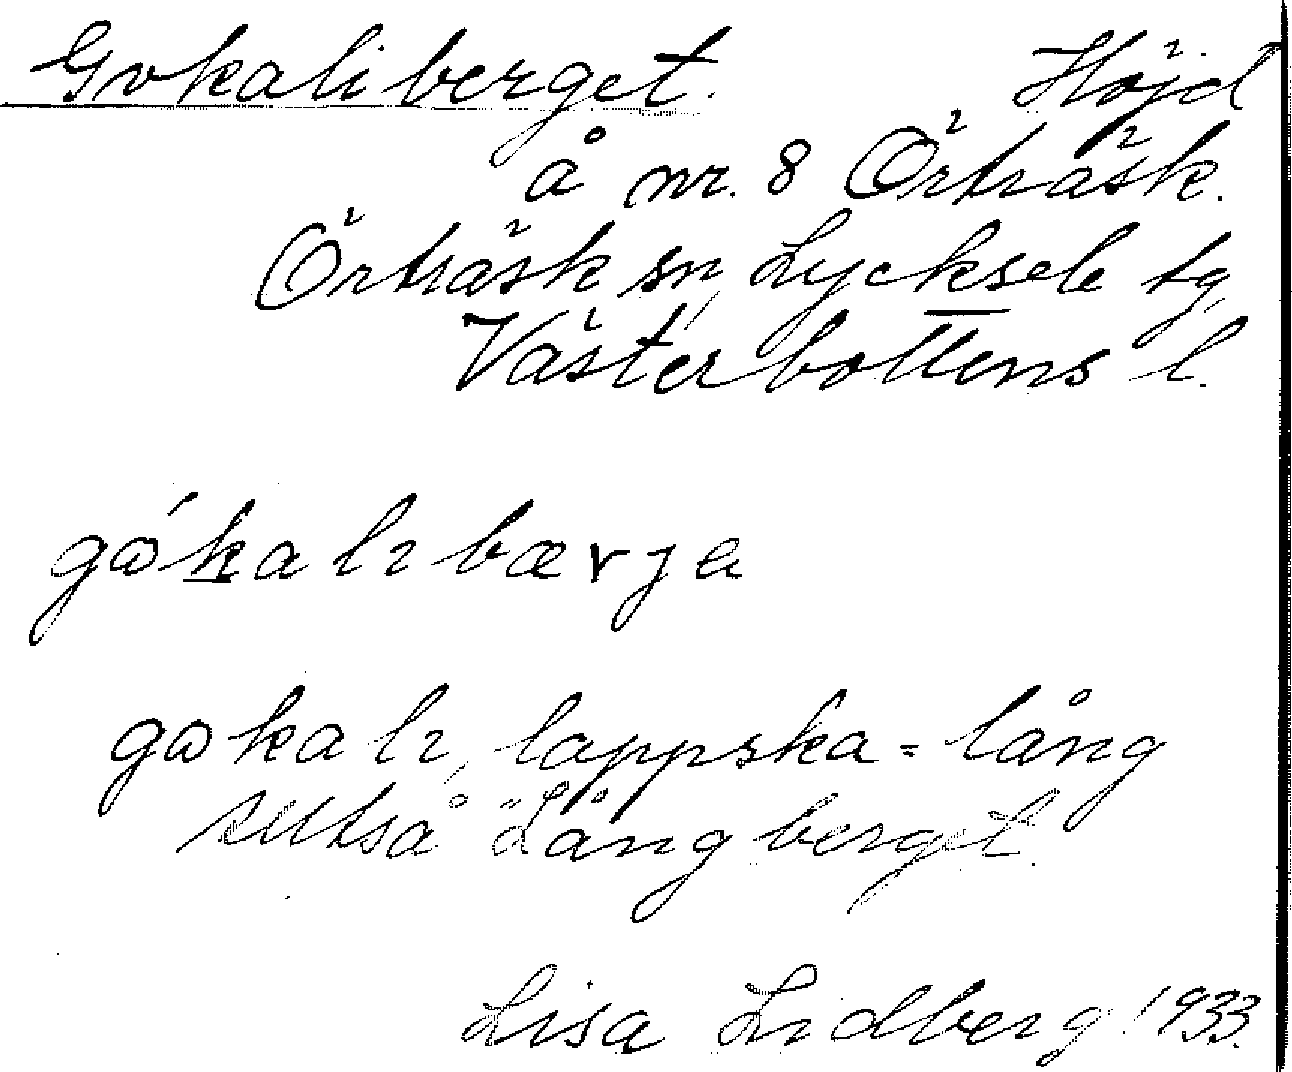 Gokaliberget. Höjd
å nr. 8 Örträsk.
Örträsk sn, Lycksele tg
Västerbottens l.
gωʹkalı bærjɐ
gωkalı, lappska = lång
alltså "Långberget.
Lisa Lidberg 1933.